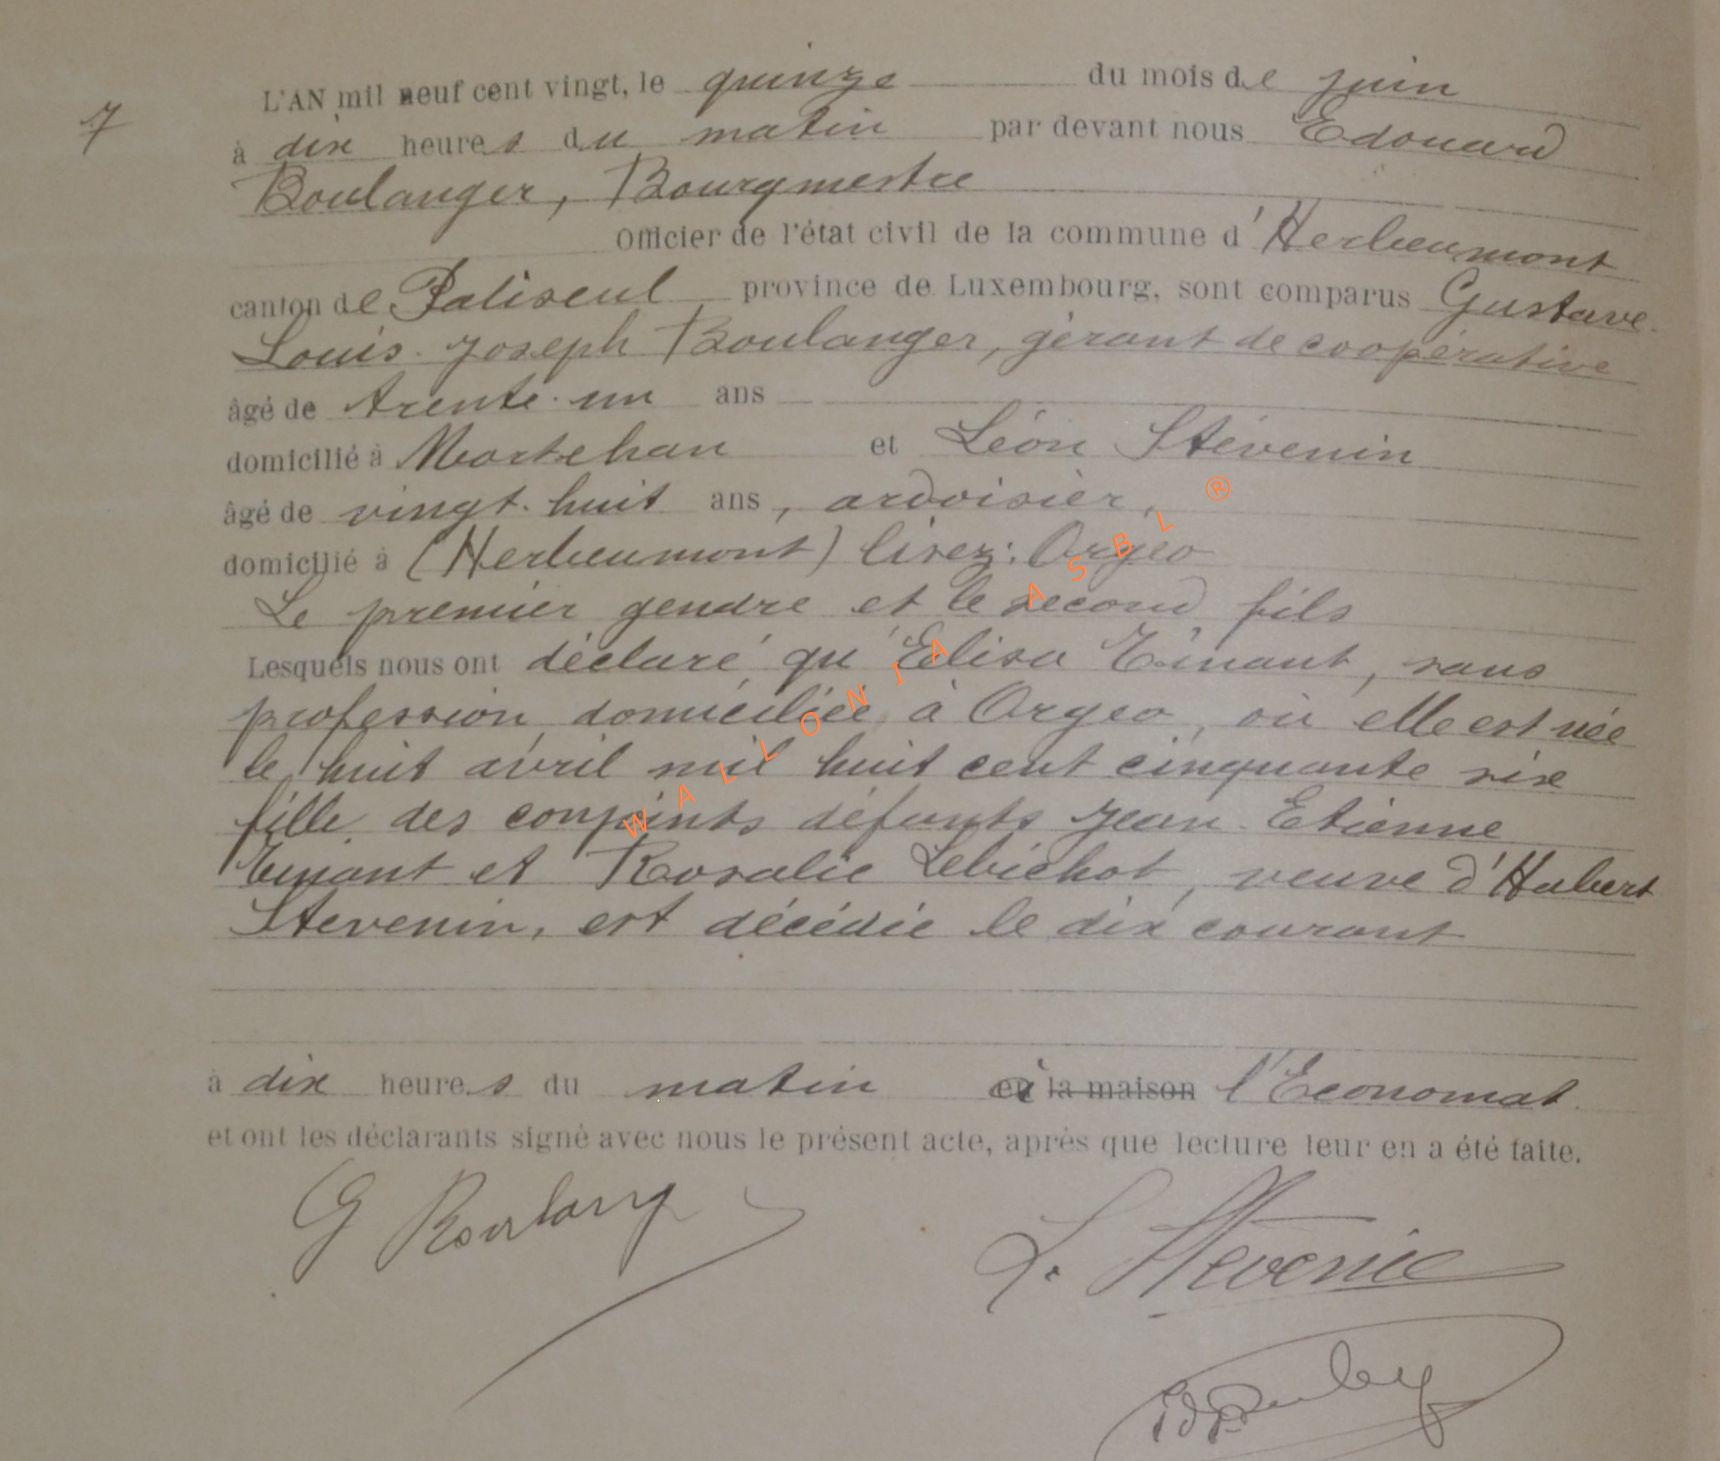 7
L'AN mil neuf cent vingt, le quinze du mois de juin
à dix heures du matin par devant nous Edouard
Boulanger, Bourgmestre
Officier de l'état civil de la commune d'Herbeumont
canton de Paliseul province de Luxembourg, sont comparus Gustave
Louis Joseph Boulanger, gérant de coopérative
âgé de trente-un ans
domicilié à Mortehan et Léon Stévenin
âgé de vingt-huit ans, ardoisier,
domicilié à (Herbeumont) lisez: Orgeo
Le premier gendre et le second fils
Lesquels nous ont déclaré qu'Elisa Evinant, sans
profession, domiciliée à Orgeo, où elle est née
le huit avril mil huit cent cinquante six
fille des conjoints défunts Jean-Etienne
et Rosalie Lebichot, veuve d'Hubert
Stevenin, est décédée le dix courant
à dix heures du matin en à la maison l'Economat
et ont les déclarants signé avec nous le présent acte, après que lecture leur en a été faite.
G Boulang
L. Stevenin
WALLONIA ASBL ®